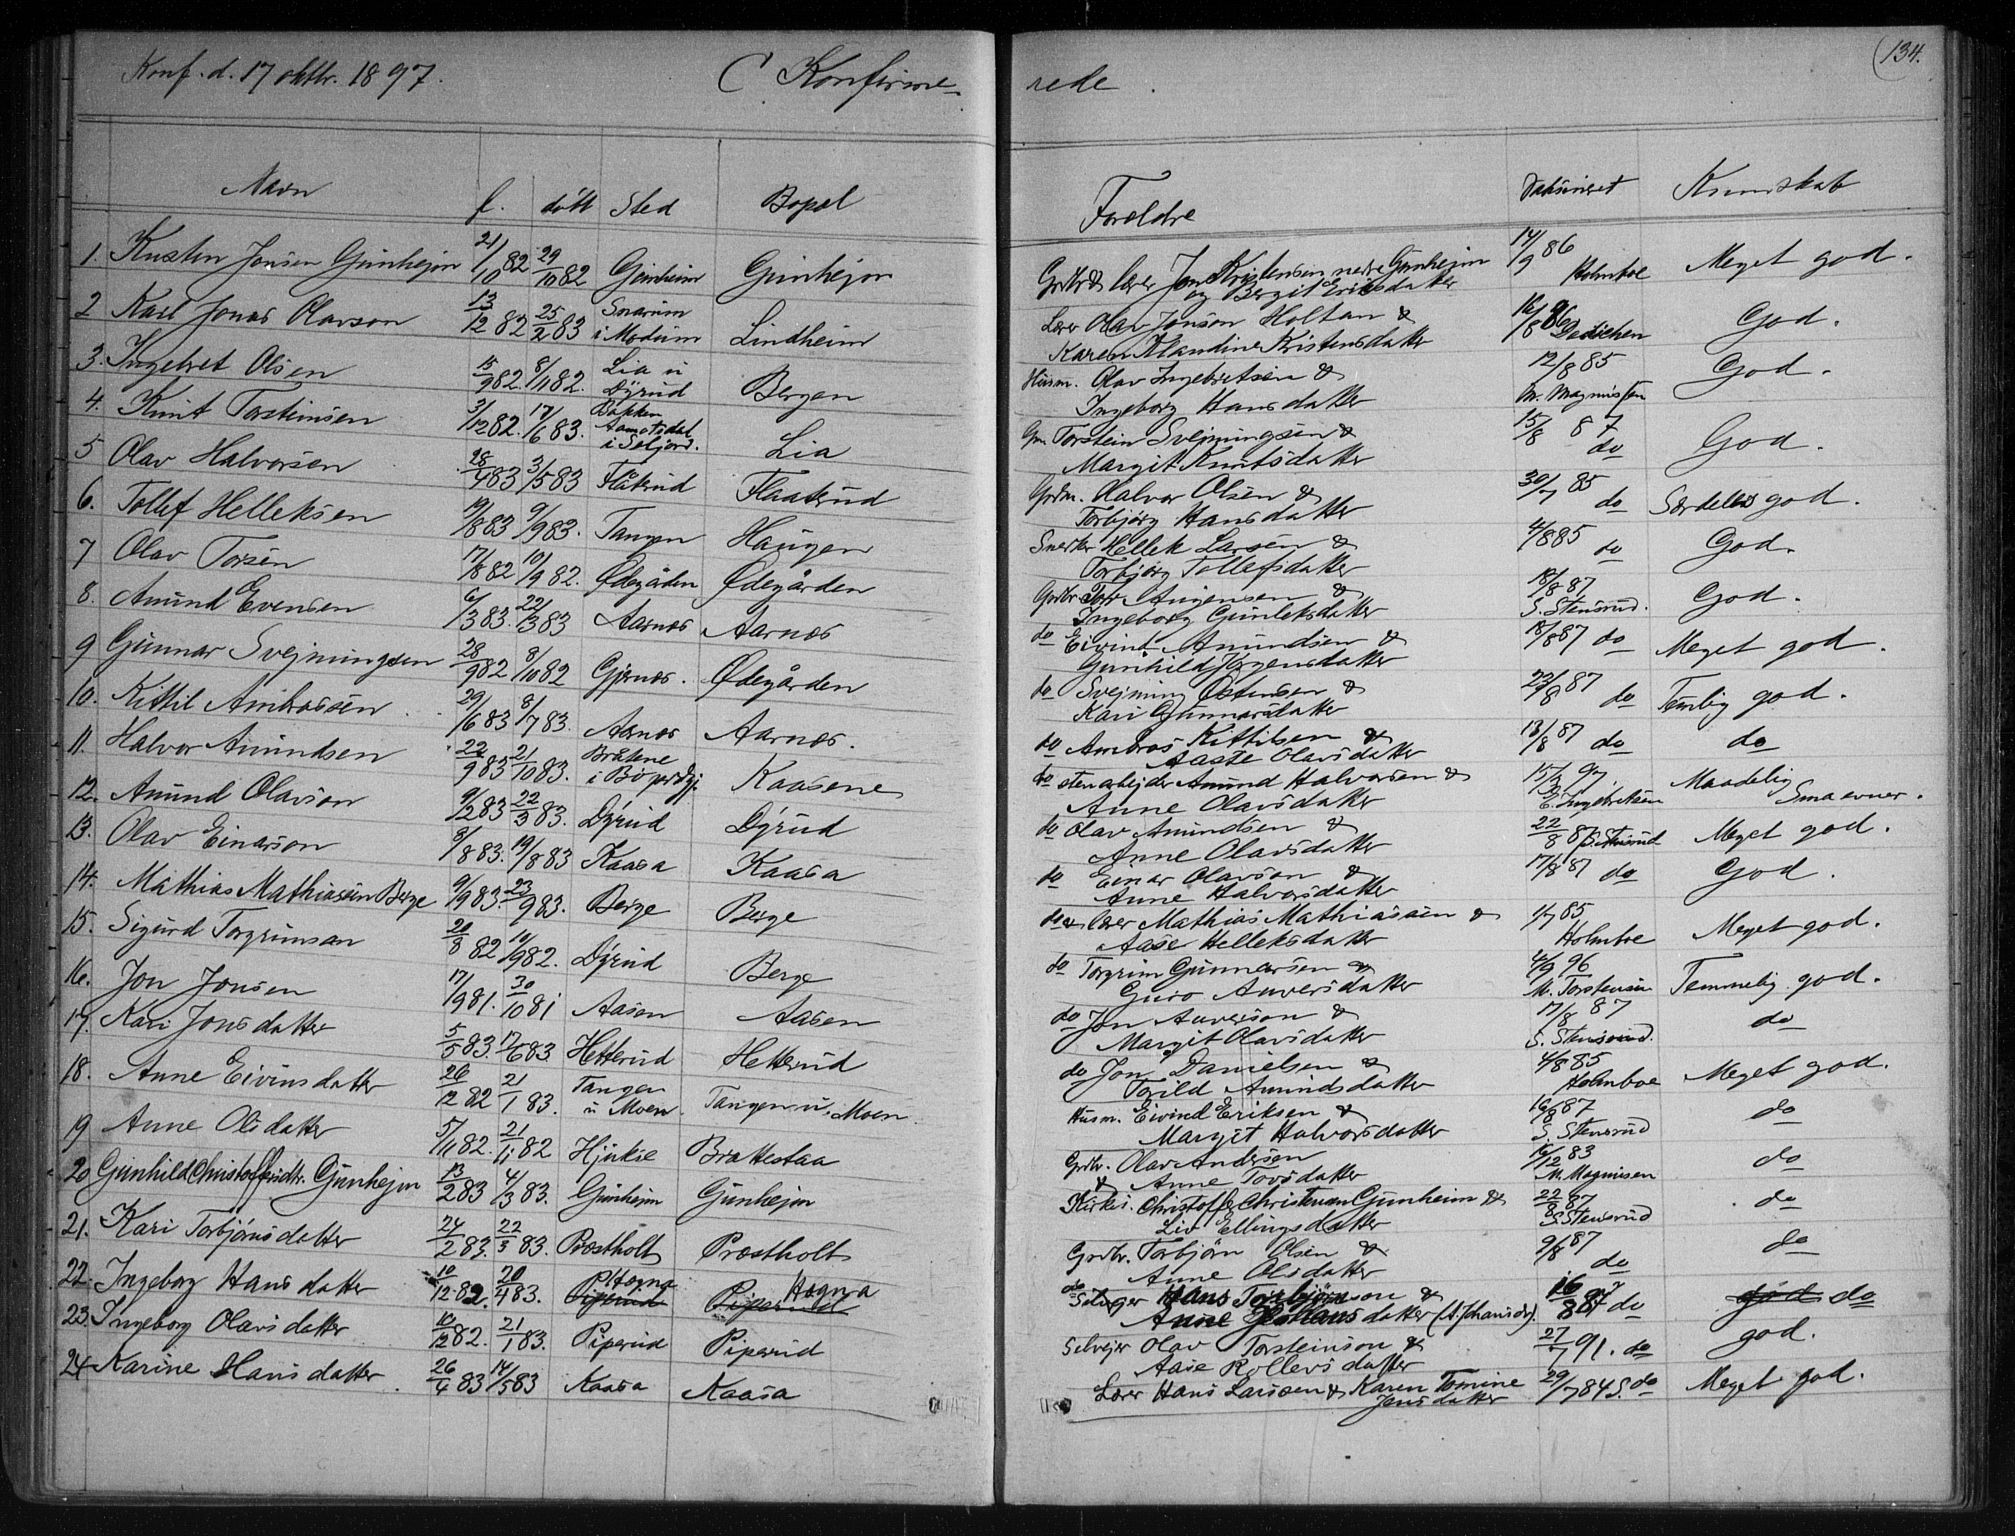 134.
Konf. d. 17 oktbr. 1897. C Konfirme- rede.
Navn f. døbt Sted Bopæl Forældre Vaksineret Kunnskab
1. Kristen Jonsen Gunheim 21/10 82 29/10 82 Gunheim Gunheim Grdbr & lærer Jon Kristensen nedre Gunheim 14/9 86 Meget god.
og Bergit Eriksdatter Holmboe
2 Karl Jonas Olavson 13/12 82 25/2 83 Snarum Lindheim Lærer Olav Jonson Holtan & 16/8 86 God.
i Modum Karen Klandine Kristensdatter
3. Ingebret Olsen 15/9 82. 8/11 82. Lia u Bergan Husm. Olav Ingebretsen & 12/8 85 God.
Dyrud Ingeborg Hansdatter M. Magnussen
4. Knut Torsteinsen 3/12 82. 17/6 83. Bakken Lia Gm. Torstein Svejnungsen & 15/8 87 God.
Aamotsdal
i Seljord. Margit Knutsdatter do
5 Olav Halvorsen 28/4 83 3/5 83 Flåterud Flaaterud Grdm. Halvor Olsen & 30/7 85 Særdeles god.
Torbjørg Hansdatter do
6. Tollef Helleksen 19/8 83 9/9 83. Tangen Haugen Snerker Hellek Larsen & 4/8 85 do God.
Torbjørg Tollefsdatter
7 Olav Torsen 17/8 82 10/9 82. Ødegården Ødegården Grdbr Tor Augensen & 18/8 87, God.
Ingeborg Gunleksdatter S. Stensrud.
8. Amund Evensen 6/3 83. 22/3 83 Aarnes Aarnes do Eivind Amundsen & 18/8 87 do Meget god.
Gunhild Jørgensdatter
9 Gunnar Svejnungsen 28/9 82 8/10 82 Gjernes. Ødegården do Svejnung Østensen & 23/8 87 Temlig god.
Kari Gunnarsdatter do
10. Kittil Ambrosen 29/6 83 8/7 83. Aarnes Aarnes. do Ambros Kittilsen & 13/8 87 do do
Aaste Olavsdatter
11. Halvor Amundsen 22/9 83 21/10 83. Bråtene Kaasene do stenarbejder Amund Halvorsen & Maadelig
i Bø prdgj. Anne Olavsdatter E. Ingebretsen Smaa evner.
12. Amund Olavson 9/2 83 22/3 83. Dyrud Dyrud do Olav Amundsen & 22/8 87 S. Stensrud Meget god.
Anne Olavsdatter
13. Olav Einarson 8/8 83. 19/8 83 Kaasa Kaasa do Einar Olavson & 17/8 87 do God.
Anne Halvorsdatter
14. Mathias Mathiassen Berge 9/9 83. 23/9 83. Berge Berge do & lærer Mathias Mathiassen & 1/7 85 Meget god.
Aase Helleksdatter Holmboe
15. Sigurd Torgrimsan 20/8 82 10/9 82. Dyrud Berge do Torgrim Gunnarsen & 4/9 96 Temmelig god.
Guro Anversdatter M. Torstensen
16. Jon Jonsen 17/9 81. 30/10 81 Aasen Aasen do Jon Anverson & 17/8 87 do
Margit Olavsdatter S. Stensrud.
17. Kari Jonsdatter 5/5 83. 17/6 83. Hetterud Hetterud do Jon Danielsen & 4/8 85 Meget god.
Torild Amundsdatter Holmboe
18. Anne Eivinsdatter 26/12 82 21/1 83. Tangen Tangen u. Moen. Husm. Eivind Eriksen & 16/8 87 do
u Moen. Margit Halvorsdatter S. Stensrud
19 Anne Olsdatter 5/11 82. 21/11 82 Hjuksе Brattestaa Grdbr. Olav Andersen 16/12 83 do
& Anne Torsdatter M. Magnusen
20 Gunhild Christoffersdtr. Gunhejm 13/2 83 4/3 83. Gunheim Gunhejm Kirkes. Christoffer Christensen Gunheim & 22/8 87 do
Liv Ellingsdatter S. Stensrud
21. Kari Torbjørnsdatter 24/2 83. 22/3 83. Præstholt Præstholt Grdbr. Torbjørn Olsen & 9/8 87 do
Anne Olsdatter do
22. Ingeborg Hansdatter 10/12 82. 20/4 83. Hogna Piperud Hogna Piperud do Selvejer Hans Torbjørnson & 16/8 87 do god do
Anne Johansdatter (A. Johansdr).
23. Ingeborg Olavsdatter 10/12 82. 21/1 83. Piperud Piperud Selvejer Olav Torsteinson & 27/7 91. do god.
Aase Rollevsdatter
24 Karine Hansdatter 26/4 83 14/5 83 Kaasa Kaasa Lærer Hans Larssen & Karen Tomine 29/7 84 S. do Meget god.
Jensdatter